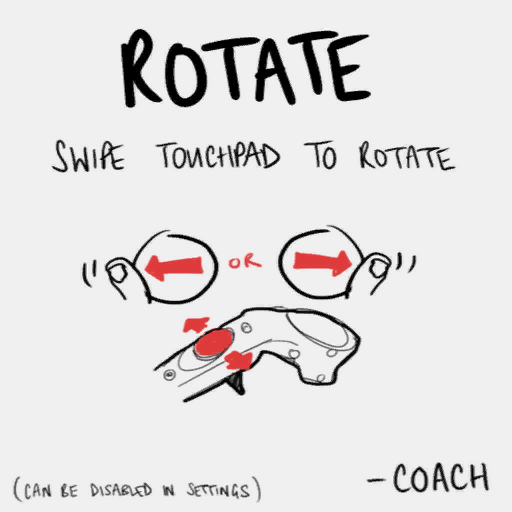 ROTATE
SWIPE TOUCHPAD TO ROTATE
OR
(CAN BE DISABLED IN SETTINGS)
-COACH